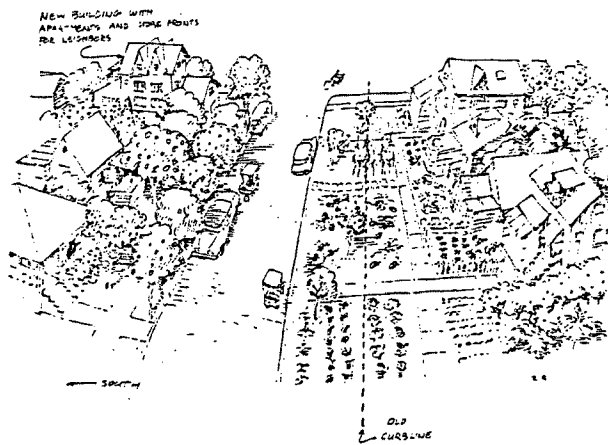 NEW BUILDING WITH
APARTMENTS AND STORE FRONTS
FOR NEIGHBORS
SOUTH
OLD
CURBLINE